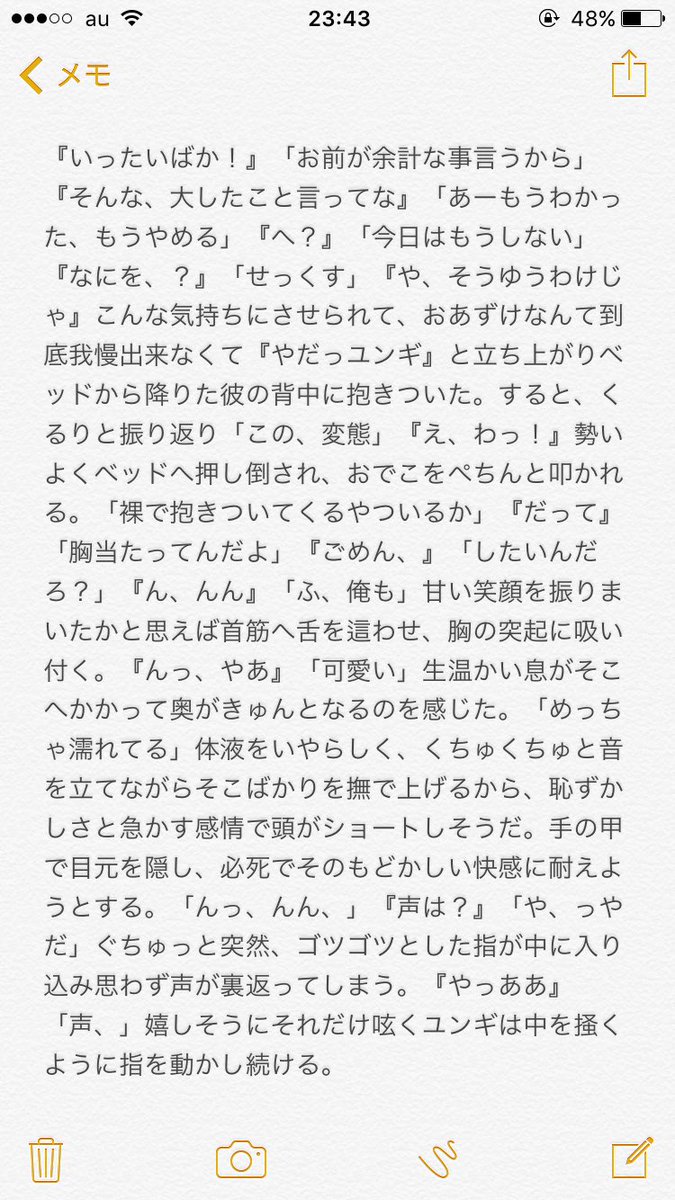 au 23:43 48%
メモ
『いったいばか！』「お前が余計な事言うから」
『そんな、大したこと言ってな』「あーもうわかっ
た、もうやめる」『へ？』「今日はもうしない」
『なにを、？』「せっくす」『や、そうゆうわけじ
ゃ』こんな気持ちにさせられて、おあずけなんて到
底我慢出来なくて『やだっユンギ』と立ち上がりベ
ッドから降りた彼の背中に抱きついた。すると、く
るりと振り返り「この、変態」『え、わっ！』勢い
よくベッドへ押し倒され、おでこをぺちんと叩かれ
る。「裸で抱きついてくるやついるか」『だって』
「胸当たってんだよ」『ごめん、』「したいんだ
ろ？」『ん、んん』「ふ、俺も」甘い笑顔を振りま
いたかと思えば首筋へ舌を這わせ、胸の突起に吸い
付く。『んっ、やあ』「可愛い」生温かい息がそこ
へかかって奥がきゅんとなるのを感じた。「めっち
ゃ濡れてる」体液をいやらしく、くちゅくちゅと音
を立てながらそこばかりを撫で上げるから、恥ずか
しさと急かす感情で頭がショートしそうだ。手の甲
で目元を隠し、必死でそのもどかしい快感に耐えよ
うとする。「んっ、んん、」『声は？』「や、っや
だ」ぐちゅっと突然、ゴツゴツとした指が中に入り
込み思わず声が裏返ってしまう。『やっああ』
「声、」嬉しそうにそれだけ呟くユンギは中を掻く
ように指を動かし続ける。